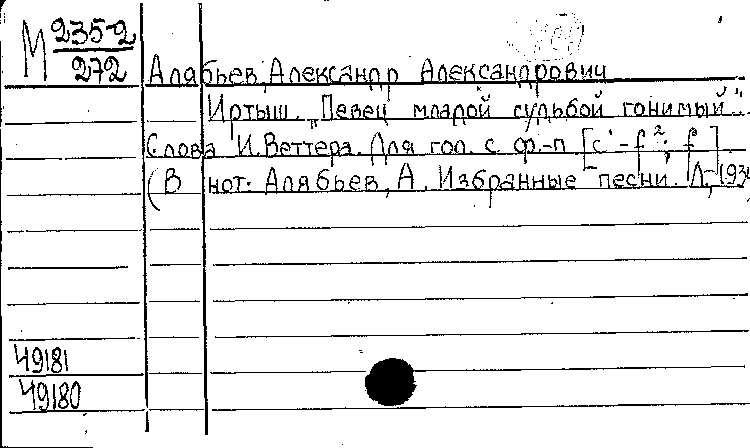 М 235-2
272
Алябьев, Александр Александрович
Иртыш. "Певец младой судьбой гонимый".
Слова И. Веттера. Для гол. с ф.-п. [c¹-f²; f]
(В нот: Алябьев, А. Избранные песни. Л., 193
49181
49180